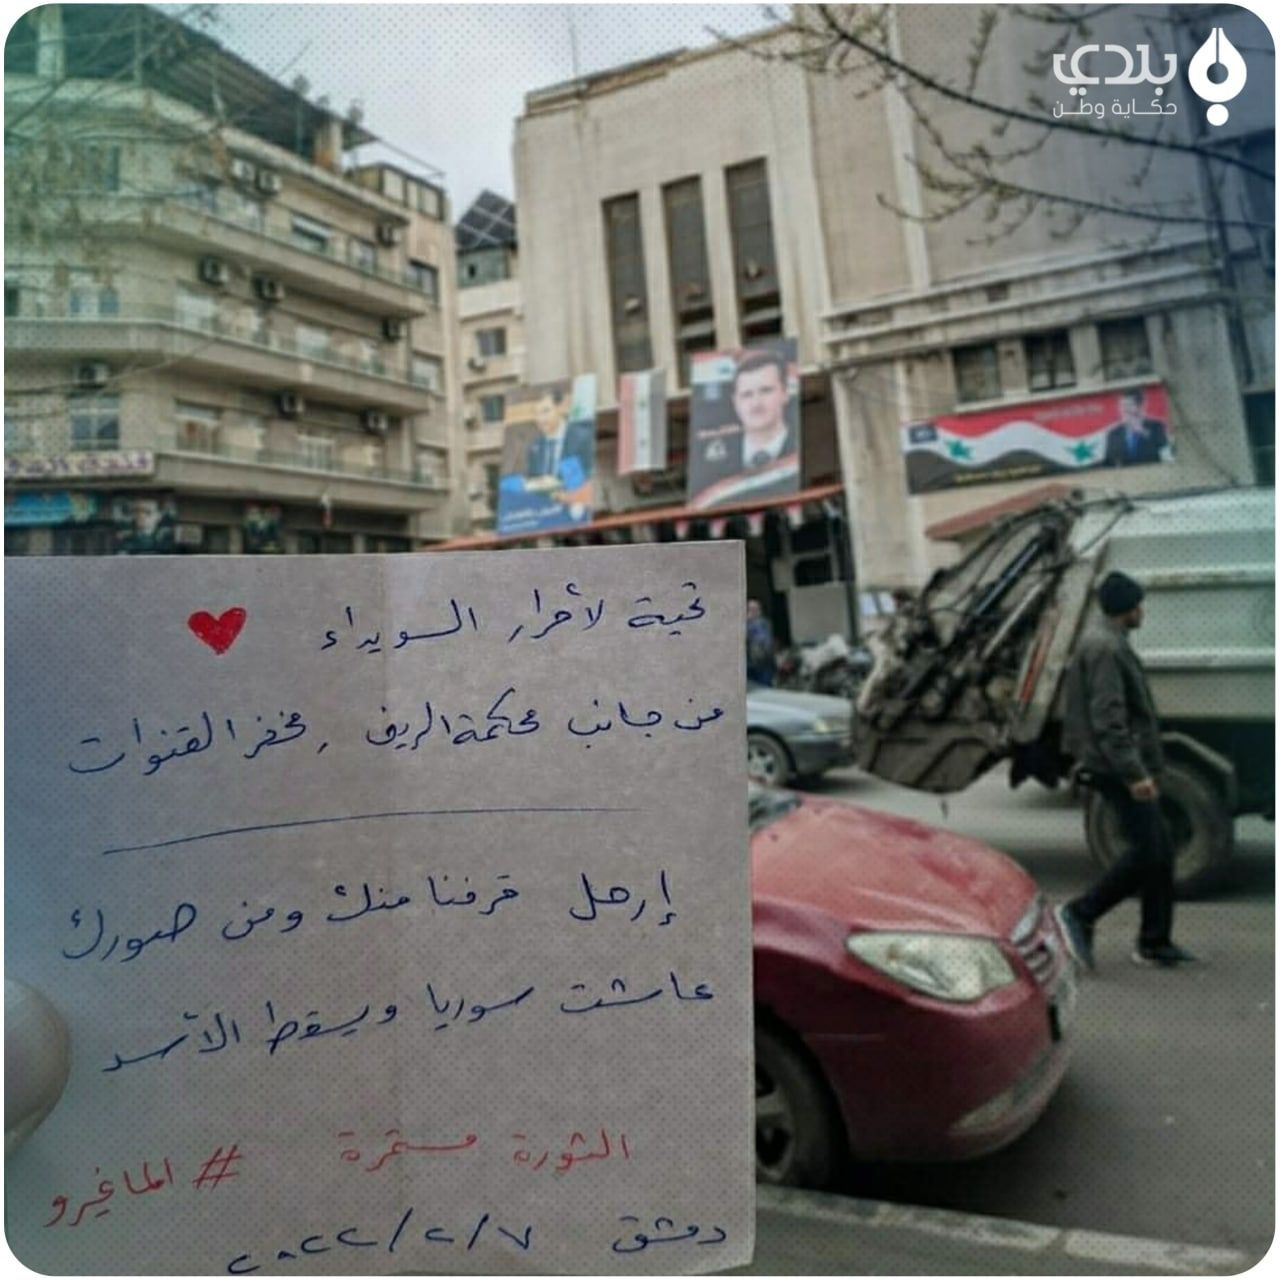 بلدي
حكاية وطن
تحية لأحرار السويداء
من جانب محكمة الريف , مخفر القنوات
إرحل قرفنا منك ومن صورك
عاشت سوريا ويسقط الأسد
الثورة مستمرة # الماغيرو
دمشق ٢٠٢٢/٢/٧